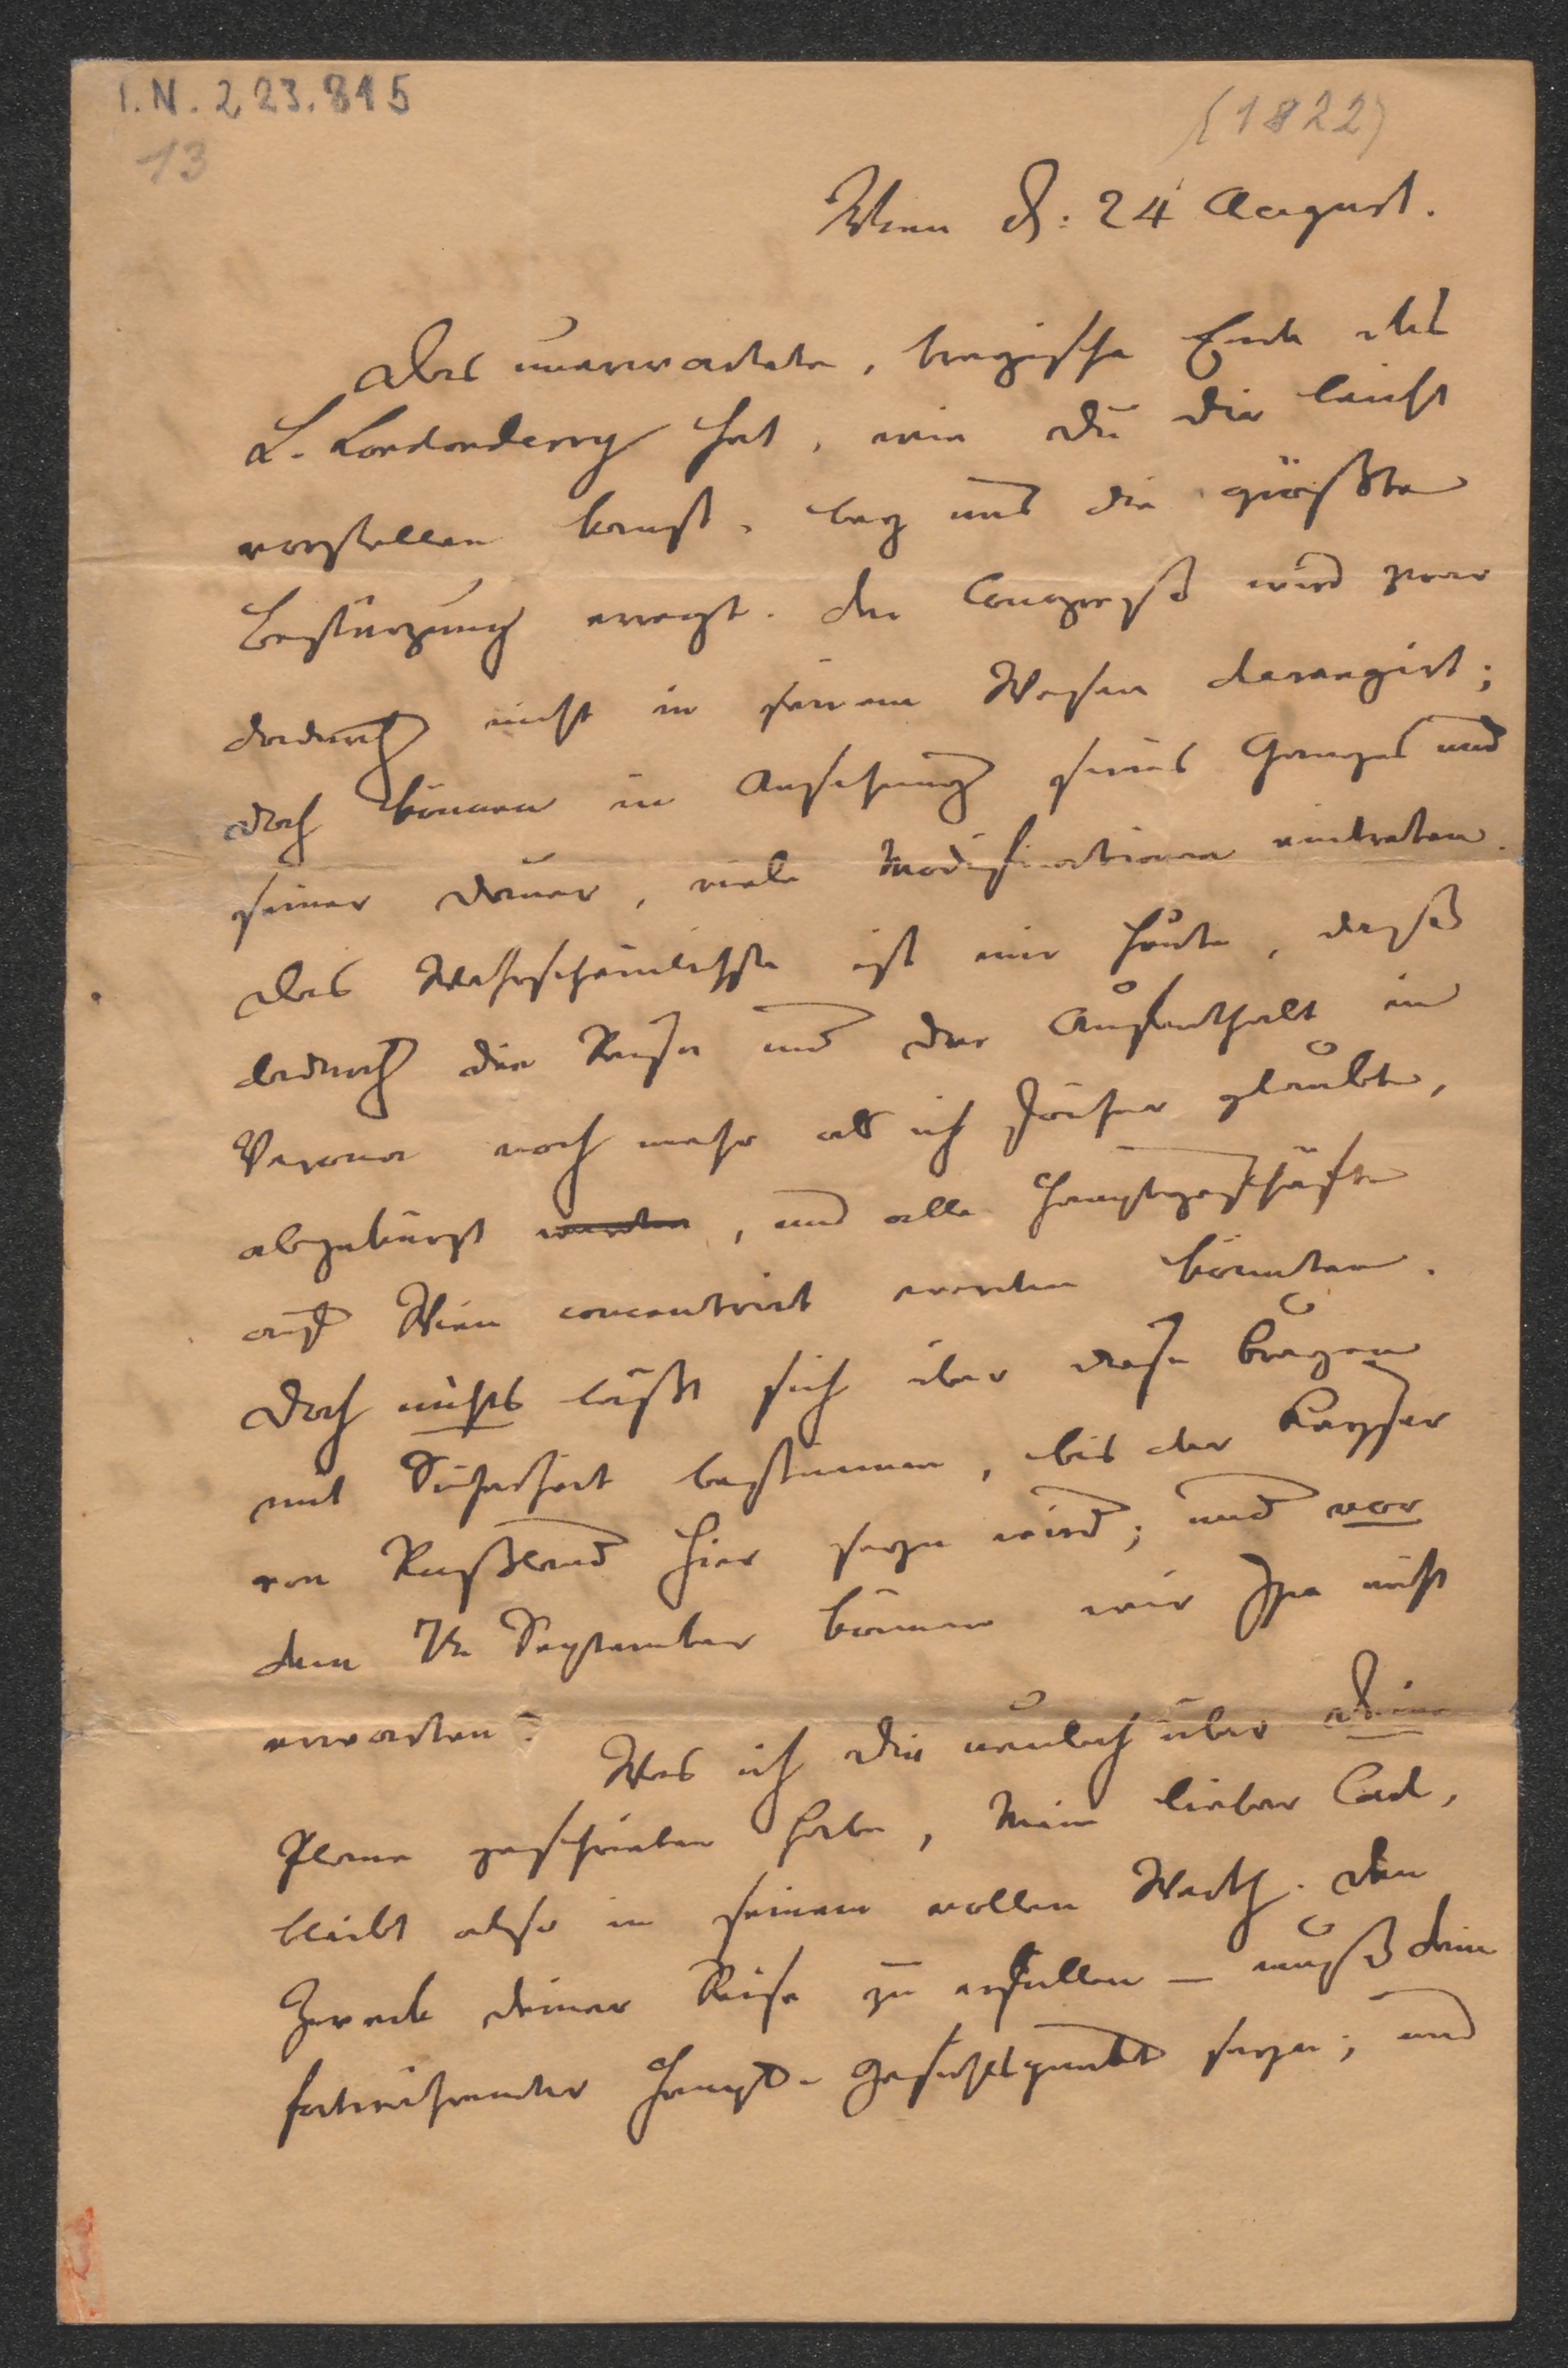 I.N. 223.815
13
(1822)
Wien d. 24 August.
Das unerwartete, tragische Ende des
L. Londonderry hat, wie Du Dir leicht
vorstellen kanst, bey uns die größte
Bestürzung erregt. Der Congreß wird zwar
dadurch nicht in seinem Wesen derangirt;
doch können in Ansehung seines Ganges und
seiner Dauer, viele Modificationen eintreten.
Das Wahrscheinlichste ist mir heute, daß
dadurch die Reise und der Aufenthalt in
Verona noch mehr als ich früher glaubte,
abgekürzt werden, und alle Hauptgeschäfte
auf Wien concentrirt werden könnten.
Doch nichts läßt sich über diese Fragen
mit Sicherheit bestimmen, bis der Kayser
von Rußland hier seyn wird; und vor
dem 7n September können wir Ihn nicht
erwarten.
Was ich Dir neulich über Deine
Plane geschrieben habe, Mein lieber Carl,
bleibt also in seinem vollen Werth. Den
Zweck deiner Reise zu erfüllen – muß dein
fortwährender Haupt-Gesichtspunkt seyn; und